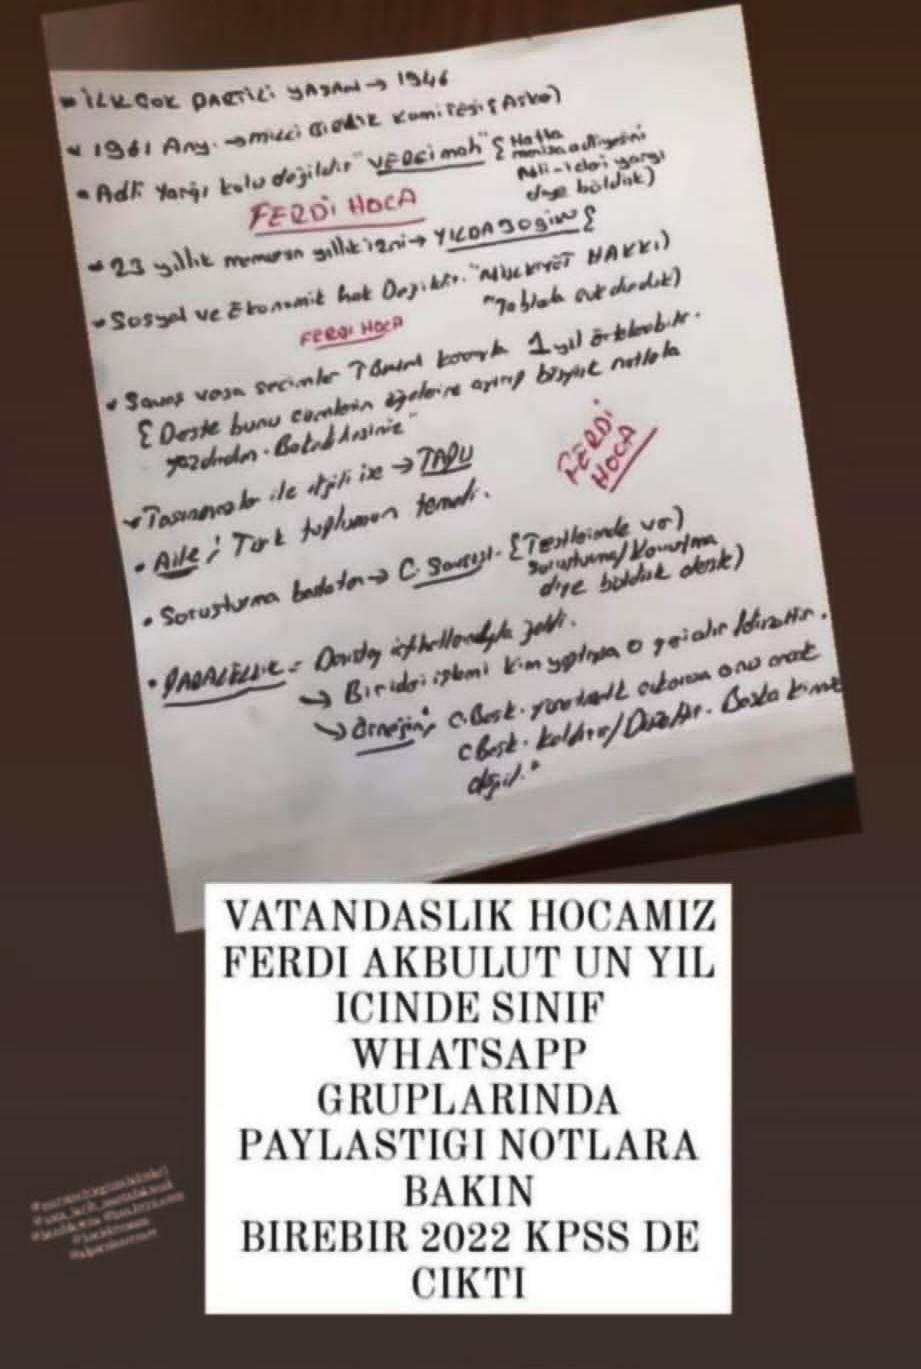 İLK ÇOK PARTİLİ YAŞAM → 1946
1961 Any. → Milli Birlik Komitesi {Aske)
Adli Yargı kolu değildir "VERGİ mah" {Hatta
Adli-İdari yargı
diye böldük)
FERDİ HOCA
23 yıllık memurun yıllık izni → YILDA 30 gün {
Sosyal ve Ekonomik hak Değildir. "MÜLKİYET HAKKI)
"Tablada
FERDİ HOCA
Savaş varsa seçimler TBMM kararıyla 1 yıl ertelenebilir.
{Derste bunu cümlenin öğelerine ayırıp büyük notlala
yazdırdım.
Taşınmazlar ile ilgili ise → TAPU
Aile; Türk toplumun temeli.
FERDİ
HOCA
Soruşturma başlatan → C. Savcısı - {Testlerinde var)
Soruşturma/Kovuşturma
diye böldük derste)
PARALELLİK = Danıştay içtihatlarıyla geldi.
→ Bir idari işlemi kim yaptıysa o geri alır /düzeltir.
→ Örneğin; C.Başk. yönetmelik çıkarırsa onu ancak
C Başk. kaldırır/Düzeltir. Başka kimse
değil."
VATANDASLIK HOCAMIZ
FERDI AKBULUT UN YIL
ICINDE SINIF
WHATSAPP
GRUPLARINDA
PAYLASTIGI NOTLARA
BAKIN
BIREBIR 2022 KPSS DE
CIKTI